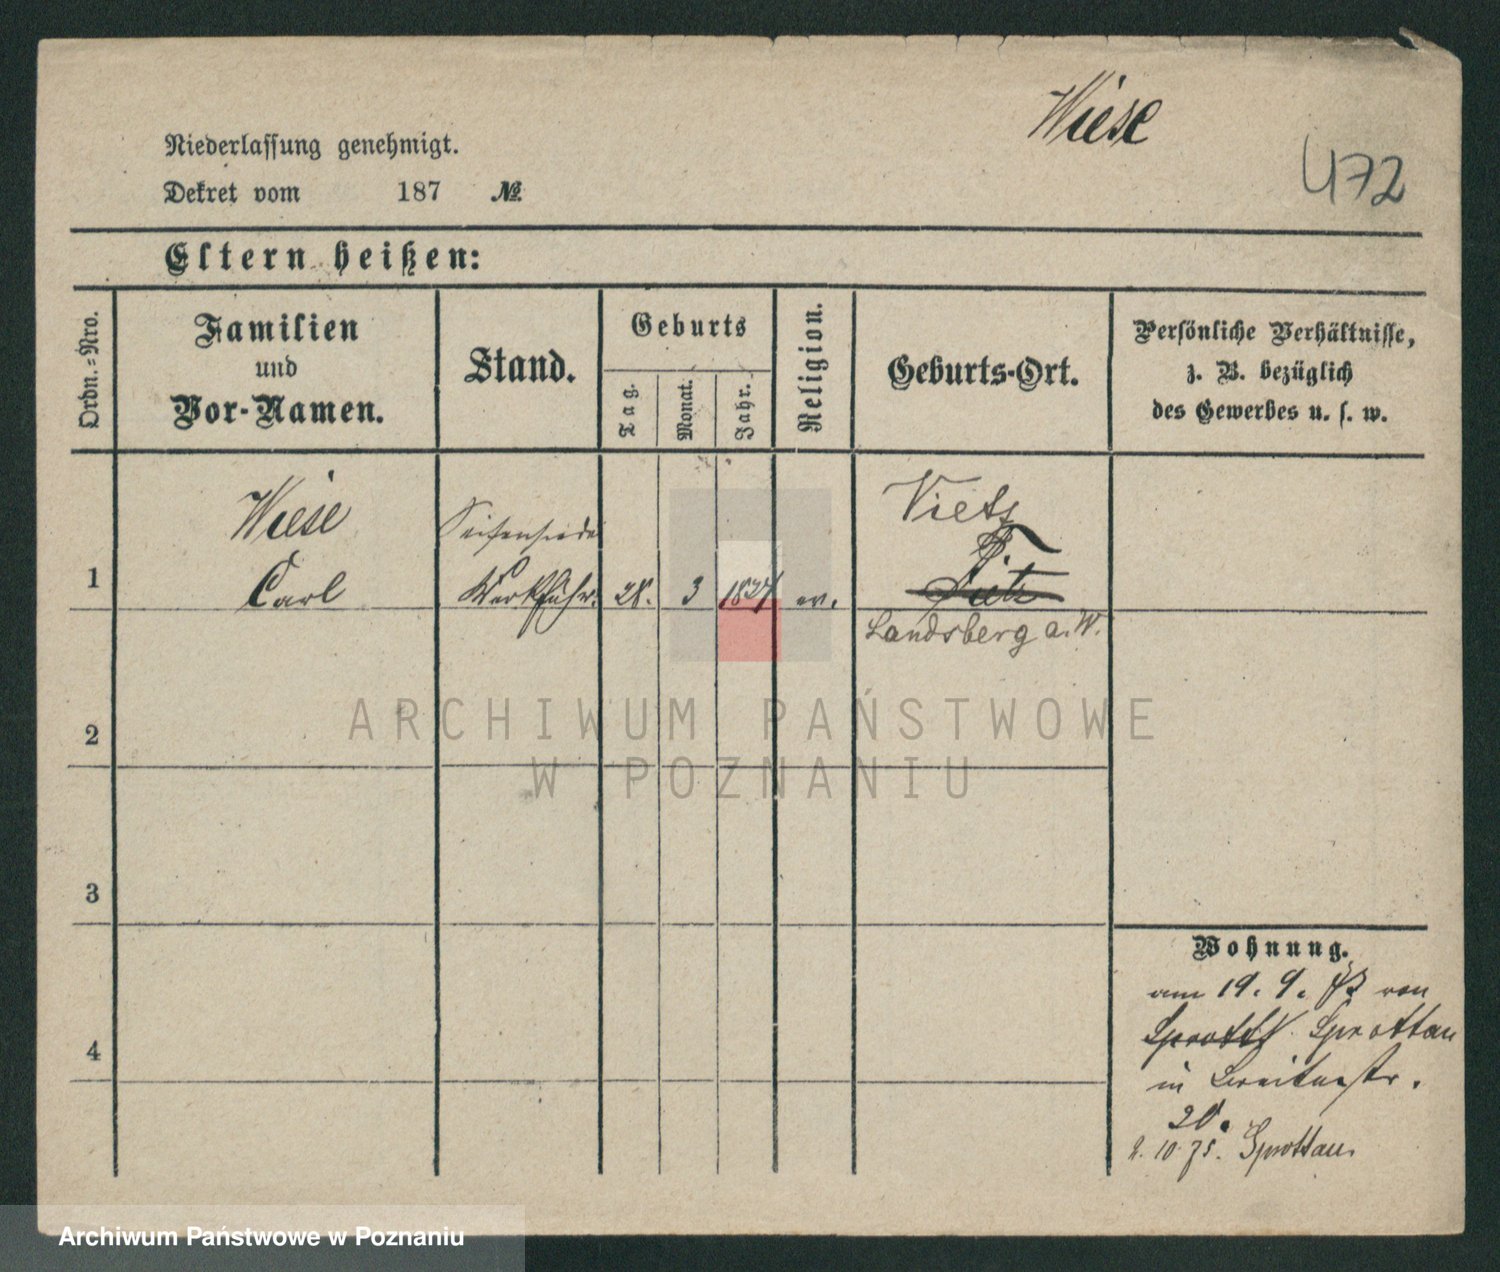 Wiese
472
Niederlassung genehmigt.
Dekret vom 187 №
Eltern heißen:
Ordn.-Nro.
Familien und Vor-Namen.
Stand.
Geburts
Tag.
Monat.
Jahr.
Religion.
Geburts-Ort.
Persönliche Verhältnisse,
z. B. bezüglich
des Gewerbes u. s. w.
1
Wiese
Carl
Seifensieder
Werkführ.
28.
3
1827
ev.
Vietz
Landsberg a. W.
2
3
4
Wohnung.
am 19. 9. von
Sprottau
in Breitestr.
20.
2. 10. 75. Sprottau.
ARCHIWUM PAŃSTWOWE
W POZNANIU
Archiwum Państwowe w Poznaniu